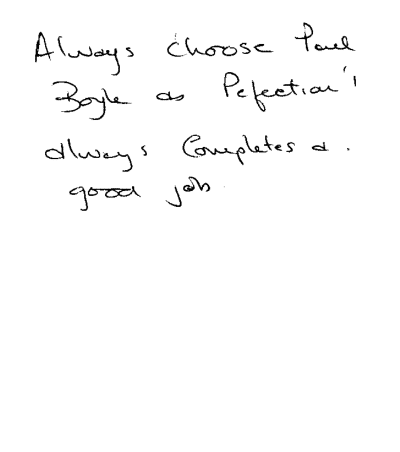 Always choose Paul
Boyle as Pefection's
always Completes a.
good job